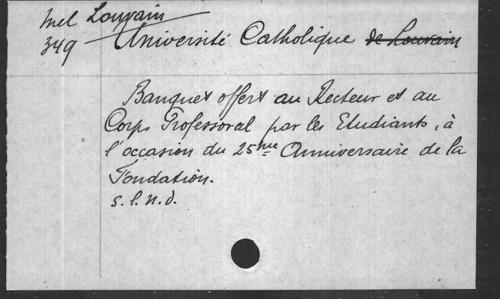 Mel Louvain
349 Université Catholique de Louvain
Banquet offert au Recteur et au
Corps Professoral par les Etudiants, à
l'occasion du 25me Anniversaire de la
Fondation.
s.l.n.d.